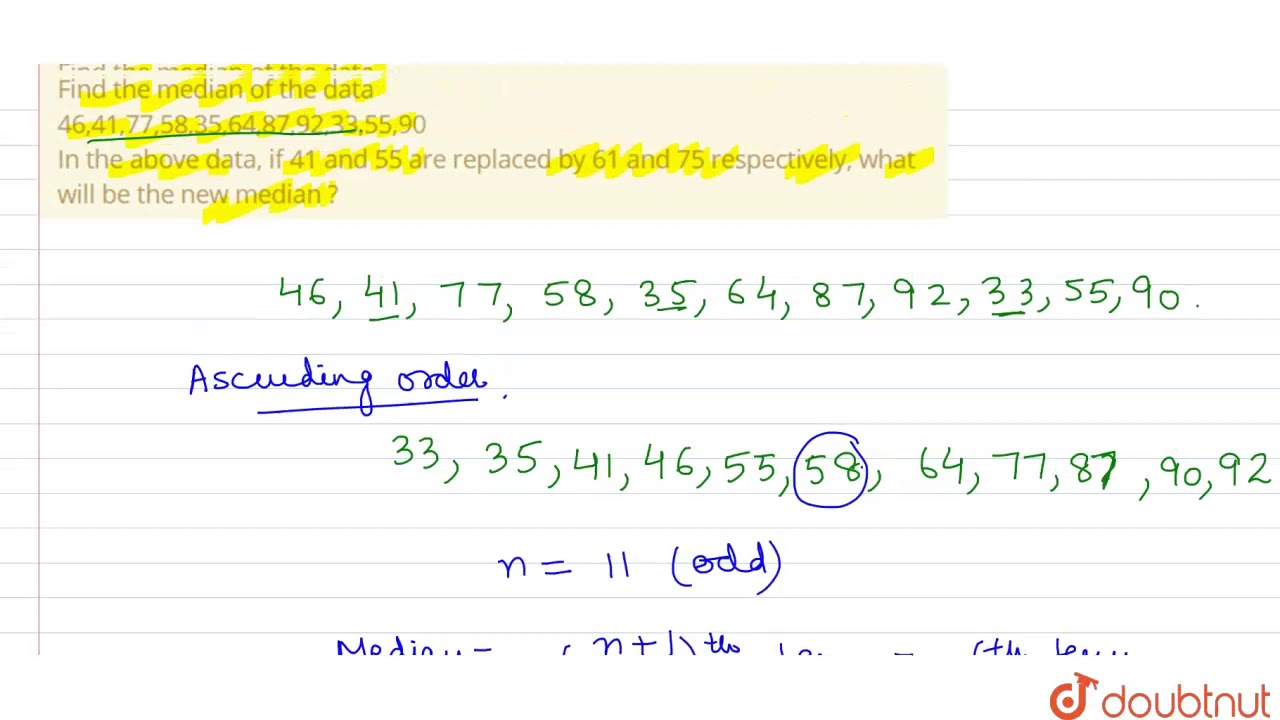 Find the median of the data
Find the median of the data
46,41,77,58,35,64,87,92,33,55,90
In the above data, if 41 and 55 are replaced by 61 and 75 respectively, what
will be the new median ?
46, 41, 77, 58, 35, 64, 87, 92, 33, 55, 90.
Ascending order.
33, 35, 41, 46, 55, 58, 64, 77, 87, 90, 92
n = 11 (odd)
Median = (n+1)th = 6th term
doubtnut